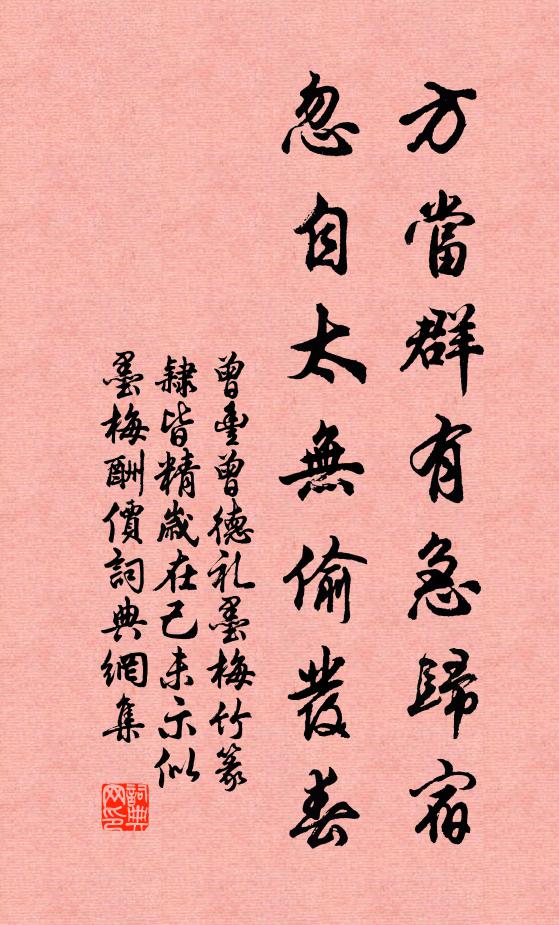 方當群有急歸宿
忽自太無偷發春
曾豐曾德礼墨梅竹篆
隸皆精歲在己未示似
墨梅酬價詞典網集
詞典网印